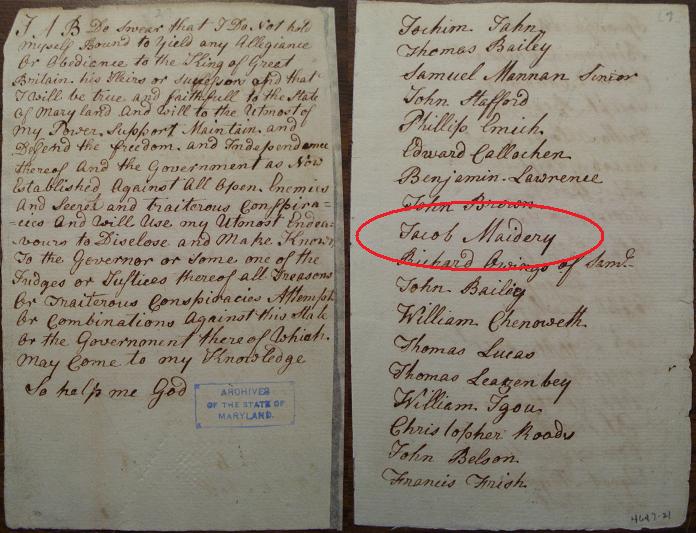 I A B Do Swear that I Do Not hold
Myself Bound to Yield any Allegiance
Or Obedience to the King of Great
Britain his Heirs or Successors and that
I will be true and faithfull to the State
Of Maryland and will to the Utmost of
my Power, Support Maintain and
Defend the freedom and Independence
thereof and the Government as Now
Established Against All Open Enemies
And Secret and traiterous Conspira=
=cies and Will Use my Utmost Endea=
vours to Disclose and Make Known
To the Governor or Some one of the
Judges or Justices thereof all Treasons
Or Traiterous Conspiracies Attempts
Or Combinations Against this State
Or the Government thereof Which
May Come to my Knowledge
So help me God
ARCHIVES
OF THE STATE OF
MARYLAND.
Jochim Fahn
Thomas Bailey
Samuel Mannan Senior
John Stafford
Phillip Emich
Edward Callochen
Benjamin Lawrence
John Brown
Jacob Maidery
Richard Owings of Saml
John Bailey
William Chenoweth
Thomas Lucas
Thomas Leatzenbey
William Igou
Christopher Roads
John Belson
Francis Frish
4647-21